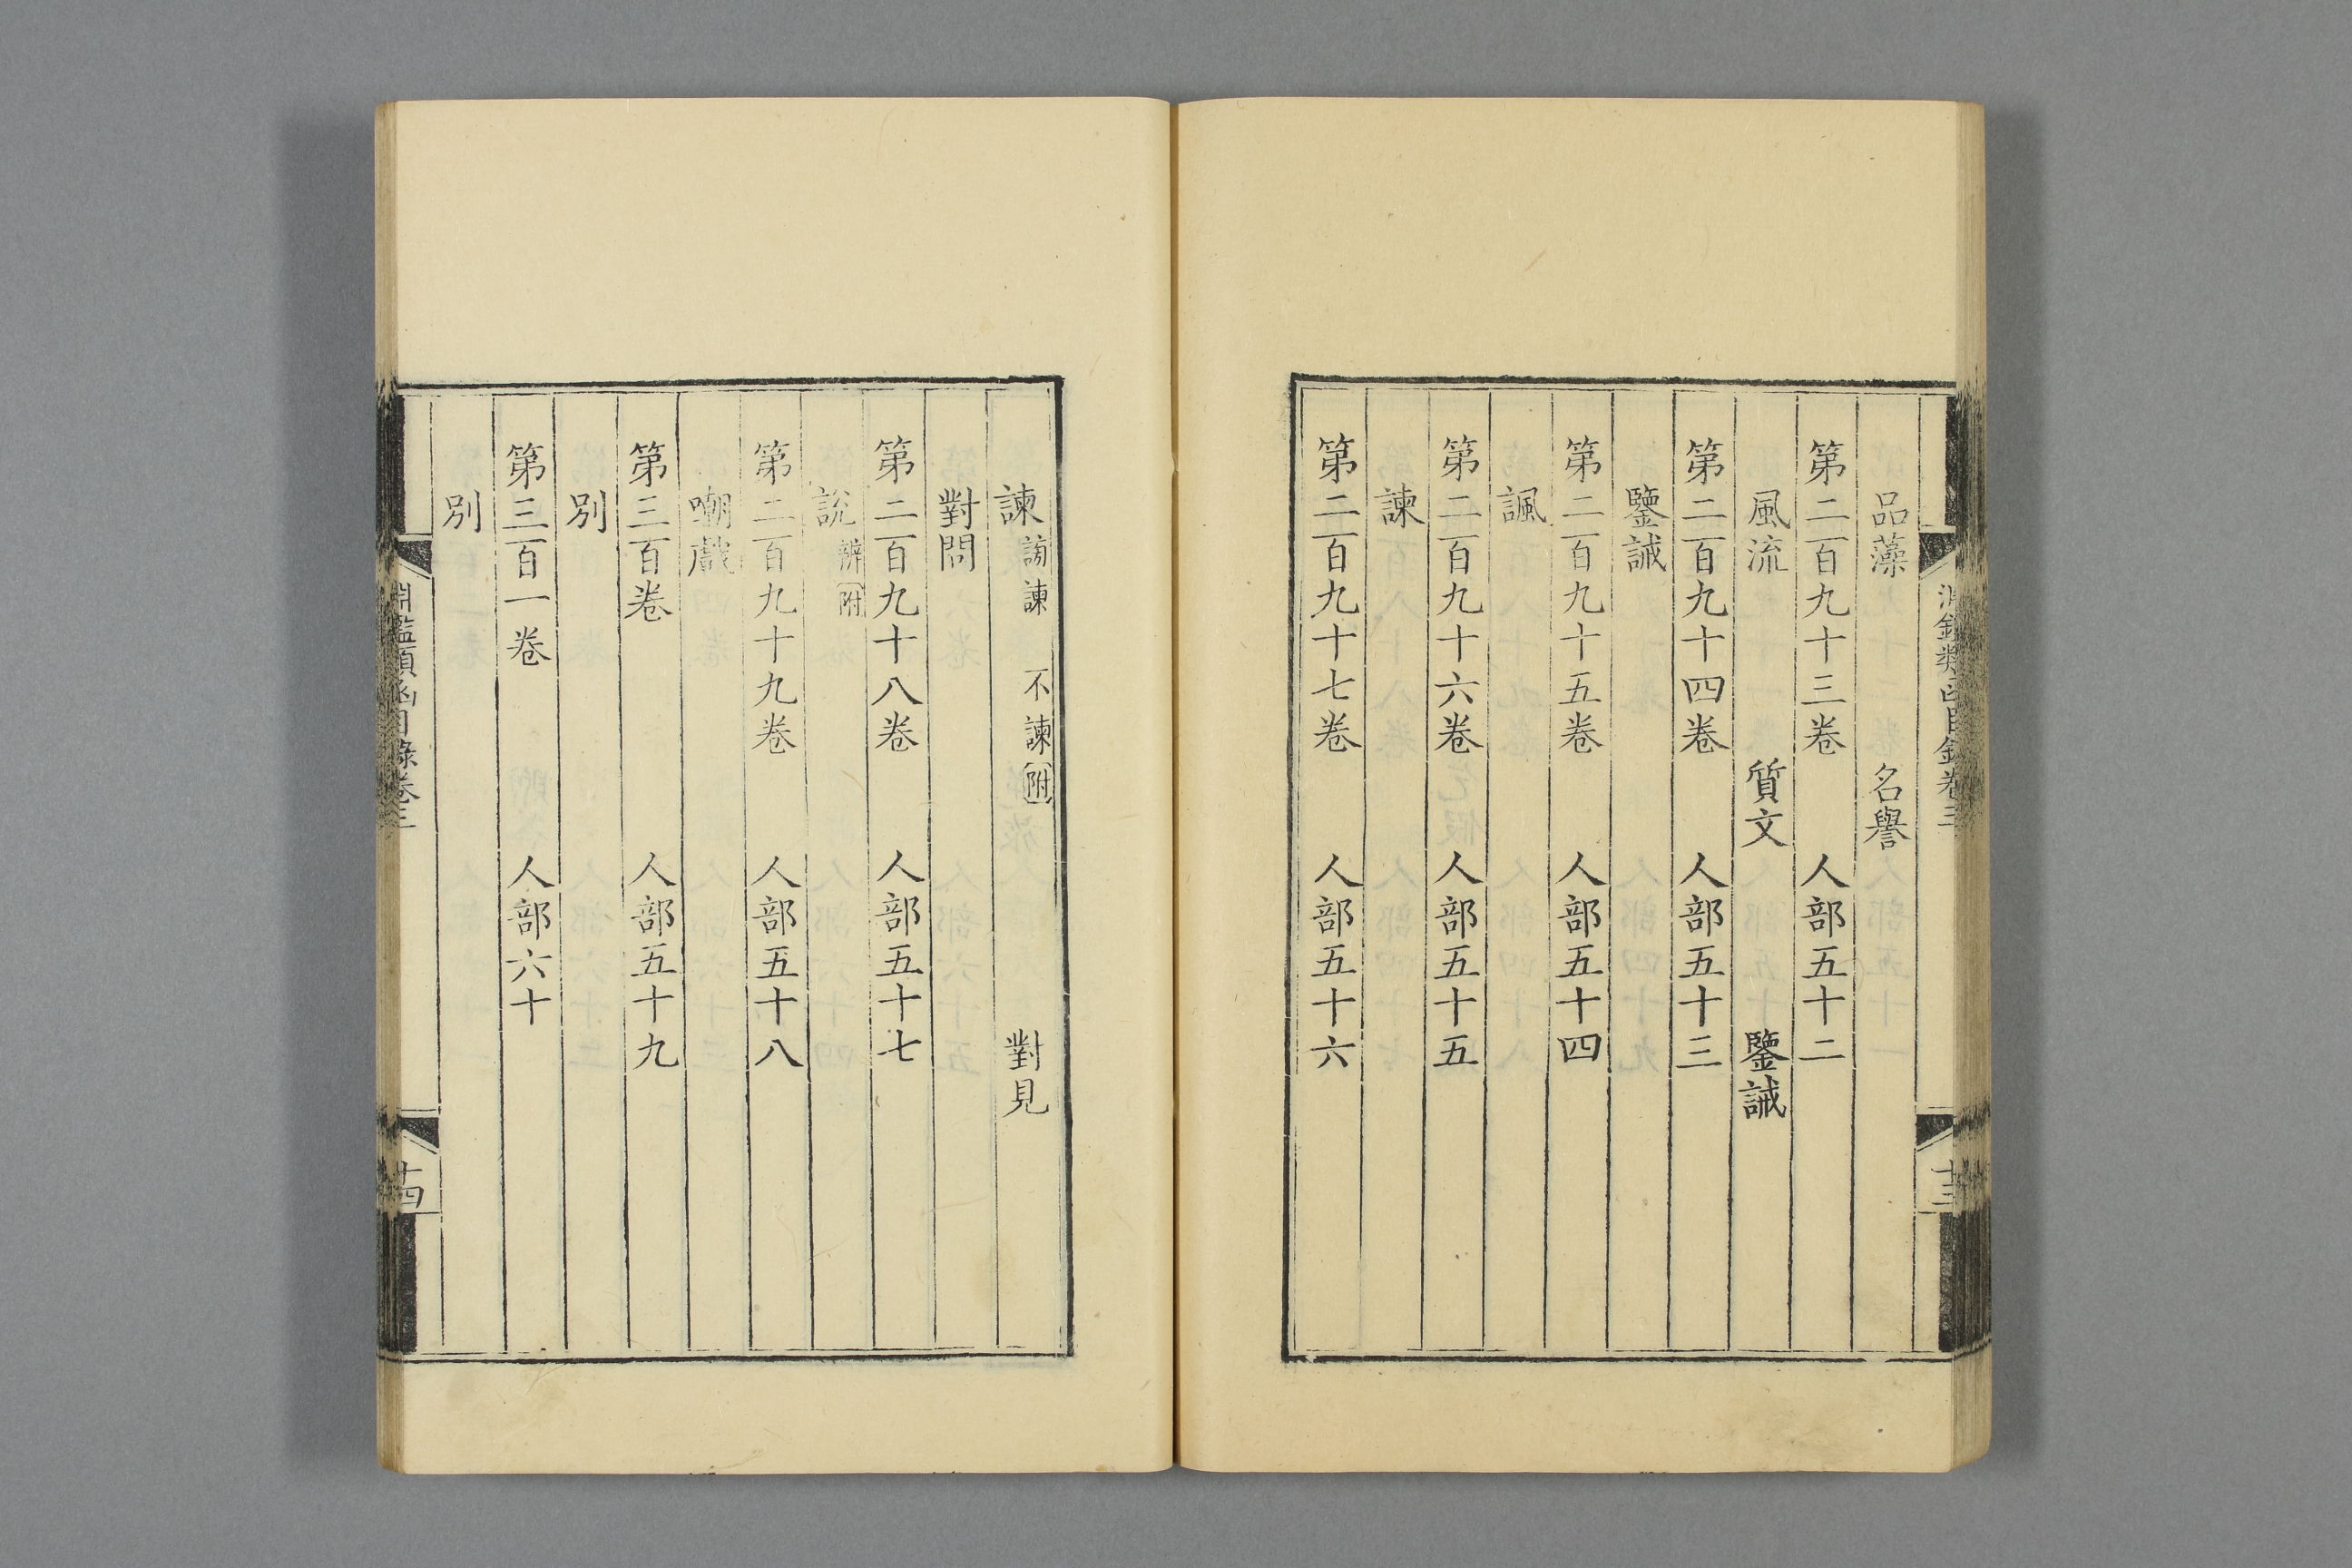 品藻 名譽
第二百九十三卷 人部五十二
風流 質文 鑒誡
第二百九十四卷 人部五十三
鑒誡
第二百九十五卷 人部五十四
諷
第二百九十六卷 人部五十五
諫
第二百九十七卷 人部五十六
諫 謝諫 不諫附 對見
對問
第二百九十八卷 人部五十七
說 辨附
第二百九十九卷 人部五十八
嘲戲
第三百卷 人部五十九
別
第三百一卷 人部六十
別
淵鑑類函目錄卷三
十四